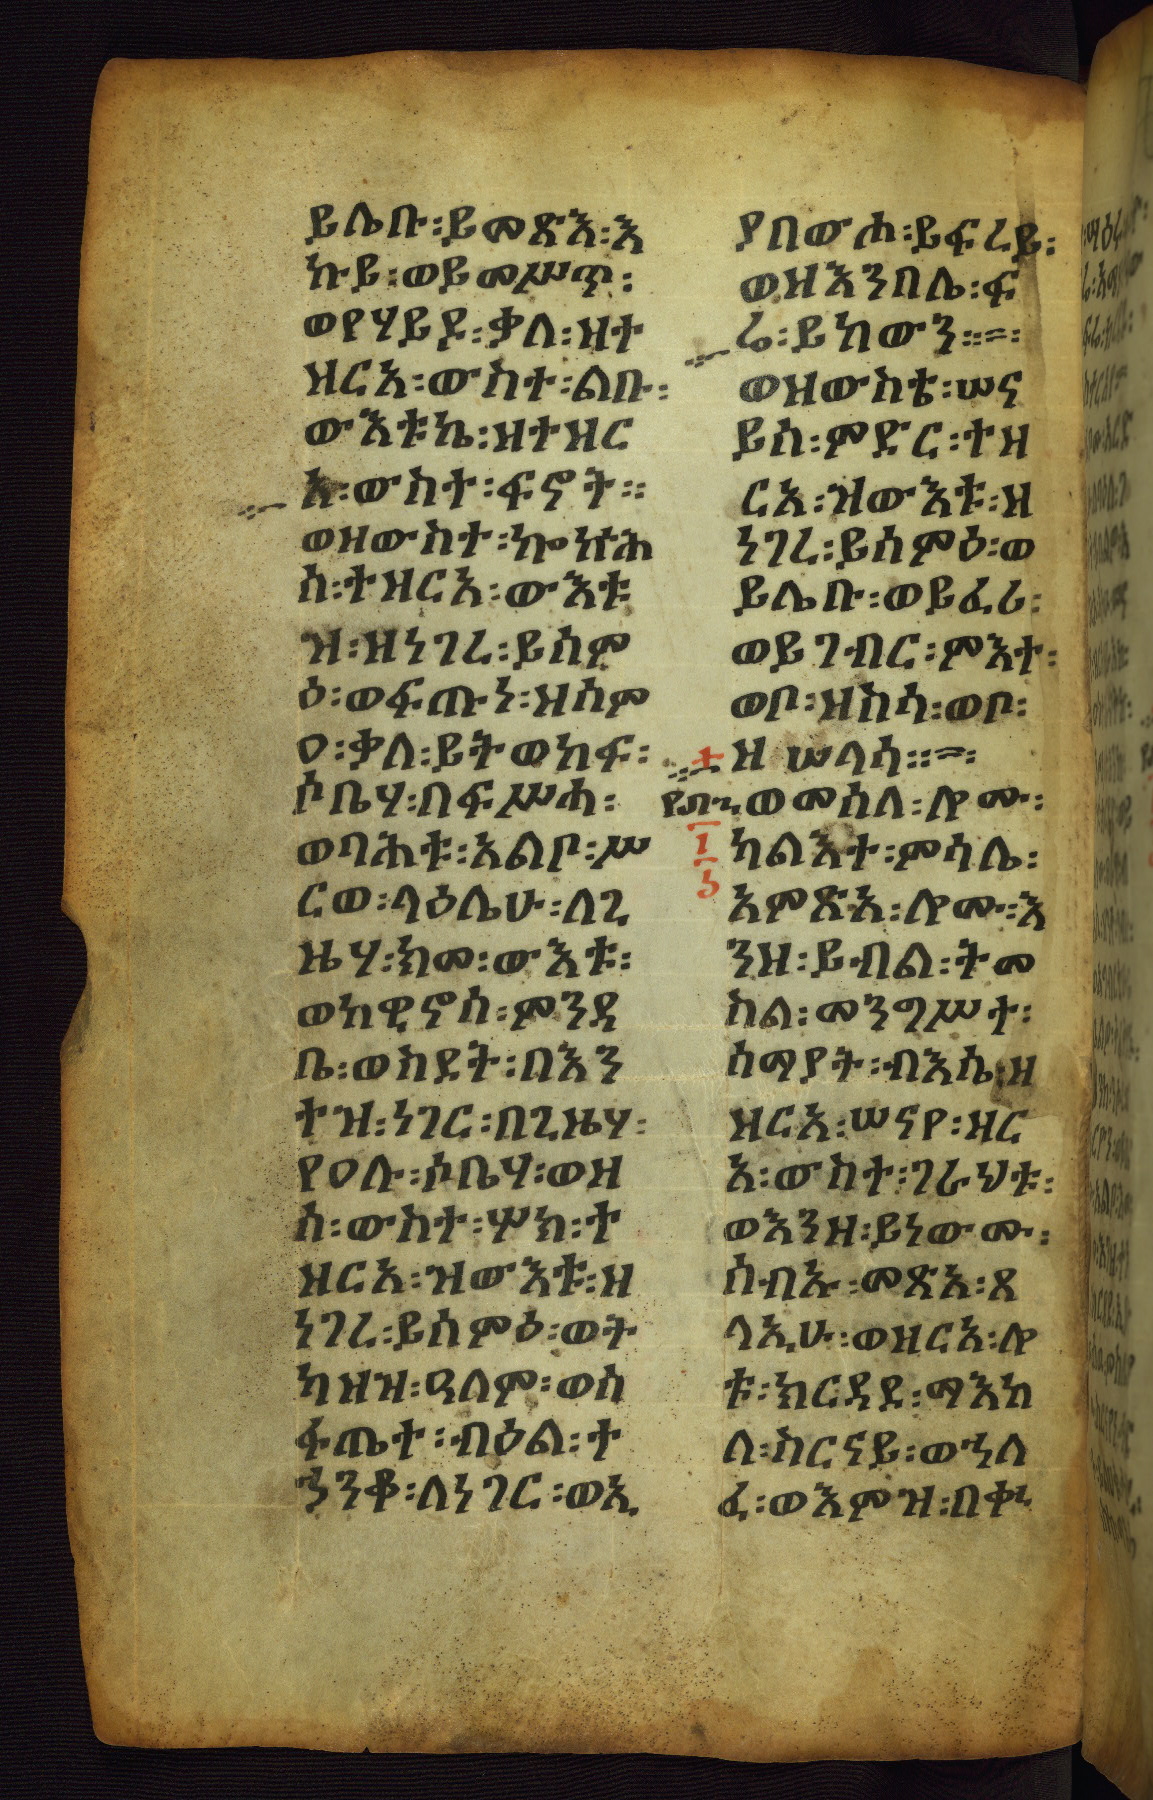 ይሌቡ፡ይመጽእ፡እ
ኩይ፡ወይመሥጥ፡
ወየሃይድ፡ቃለ፡ዝተ
ዝርአ፡ውስተ፡ልቡ፡
ውእቱኬ፡ዘተዘር
አ፡ውስተ፡ፍኖት፡፡
ወዘውስተ፡ኰኵሕ
ሰ፡ተዘርአ፡ውእቱ
ዝ፡ዘነገረ፡ይሰም
ዕ፡ወፍጡነ፡ዝሰም
ዐ፡ቃለ፡ይትወከፍ፡
ሶቤሃ፡በፍሥሓ፡
ወባሕቱ፡አልቦ፡ሥ
ርወ፡ላዕሌሁ፡ለጊ
ዜሃ፡ክመ፡ውእቱ፡
ወከዊኖሰ፡ምንዳ
ቤ፡ወስደት፡በእን
ተዝ፡ነገር፡በጊዜሃ፡
የዐሉ፡ሶቤሃ፡ወዘ
ሰ፡ውስተ፡ሦክ፡ተ
ዘርአ፡ዝውእቱ፡ዘ
ነገረ፡ይሰምዕ፡ወት
ካዘዝ፡ዓለም፡ወስ
ፋጤተ፡ብዕል፡ተ
ኀንቆ፡ለነገር፡ወኢ
ያበውሖ፡ይፍረይ፡
ወዘእንበሌ፡ፍ
ሬ፡ይከውን፡፡=፡
ወዘውስቴ፡ሠና
ይሰ፡ምድር፡ተዘ
ርአ፡ዝውእቱ፡ዘ
ነገረ፡ይሰምዕ፡ወ
ይሌቡ፡ወይፈሪ፡
ወይገብር፡ምእተ፡
ወቦ፡ዝስሳ፡ወቦ፡
ዘ ሠላሳ፡፡=፡
ወመሰለ፡ሎሙ፡
ካልእተ፡ምሳሌ፡
አምጽአ፡ሎሙ፡እ
ንዘ፡ይብል፡ትመ
ስል፡መንግሥተ፡
ሰማያት፡ብእሴ፡ዘ
ዝርአ፡ሠናየ፡ዘር
አ፡ውስተ፡ገራህቱ፡
ወእንዘ፡ይነውሙ፡
ሰብኡ፡መጽአ፡ጸ
ላኢሁ፡ወዘርአ፡ሎ
ቱ፡ክርዳደ፡ማእከ
ለ፡ስርናይ፡ወኀለ
ፈ፡ወእምዝ፡በቍ